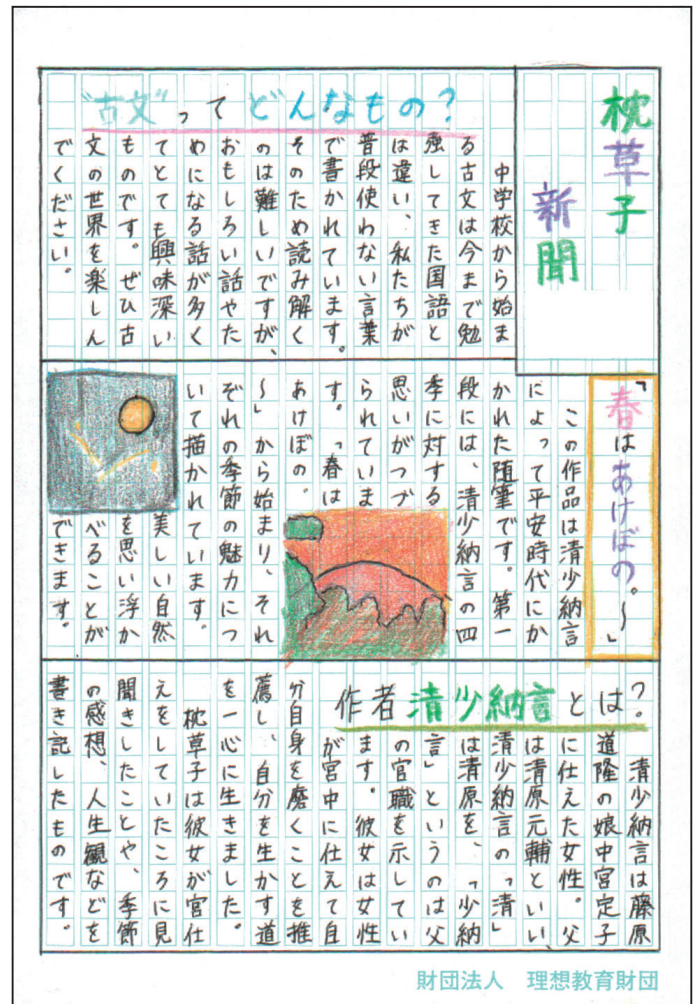 枕草子
新聞
"古文"ってどんなもの?
中学校から始ま
る古文は今まで勉
強してきた国語と
は違い、私たちが
普段使わない言葉
で書かれています。
そのため読み解く
のは難しいですが、
おもしろい話やた
めになる話が多く
てとても興味深い
ものです。ぜひ古
文の世界を楽しん
でください。
「春はあけぼの。~」
この作品は清少納言
によって平安時代にか
かれた随筆です。第一
段には、清少納言の四
季に対する
思いがつづ
られていま
す。「春は
あけぼの。
~」から始まり、それ
ぞれの季節の魅力につ
いて描かれています。
美しい自然
を思い浮か
べることが
できます。
作者清少納言とは?
清少納言は藤原
道隆の娘中宮定子
に仕えた女性。父
は清原元輔といい、
清少納言の「清」
は清原を、「少納
言」というのは父
の官職を示してい
ます。彼女は女性
が宮中に仕えて自
分自身を磨くことを推
薦し、自分を生かす道
を一心に生きました。
枕草子は彼女が宮仕
えをしていたころに見
聞きしたことや、季節
の感想、人生観などを
書き記したものです。
財団法人 理想教育財団